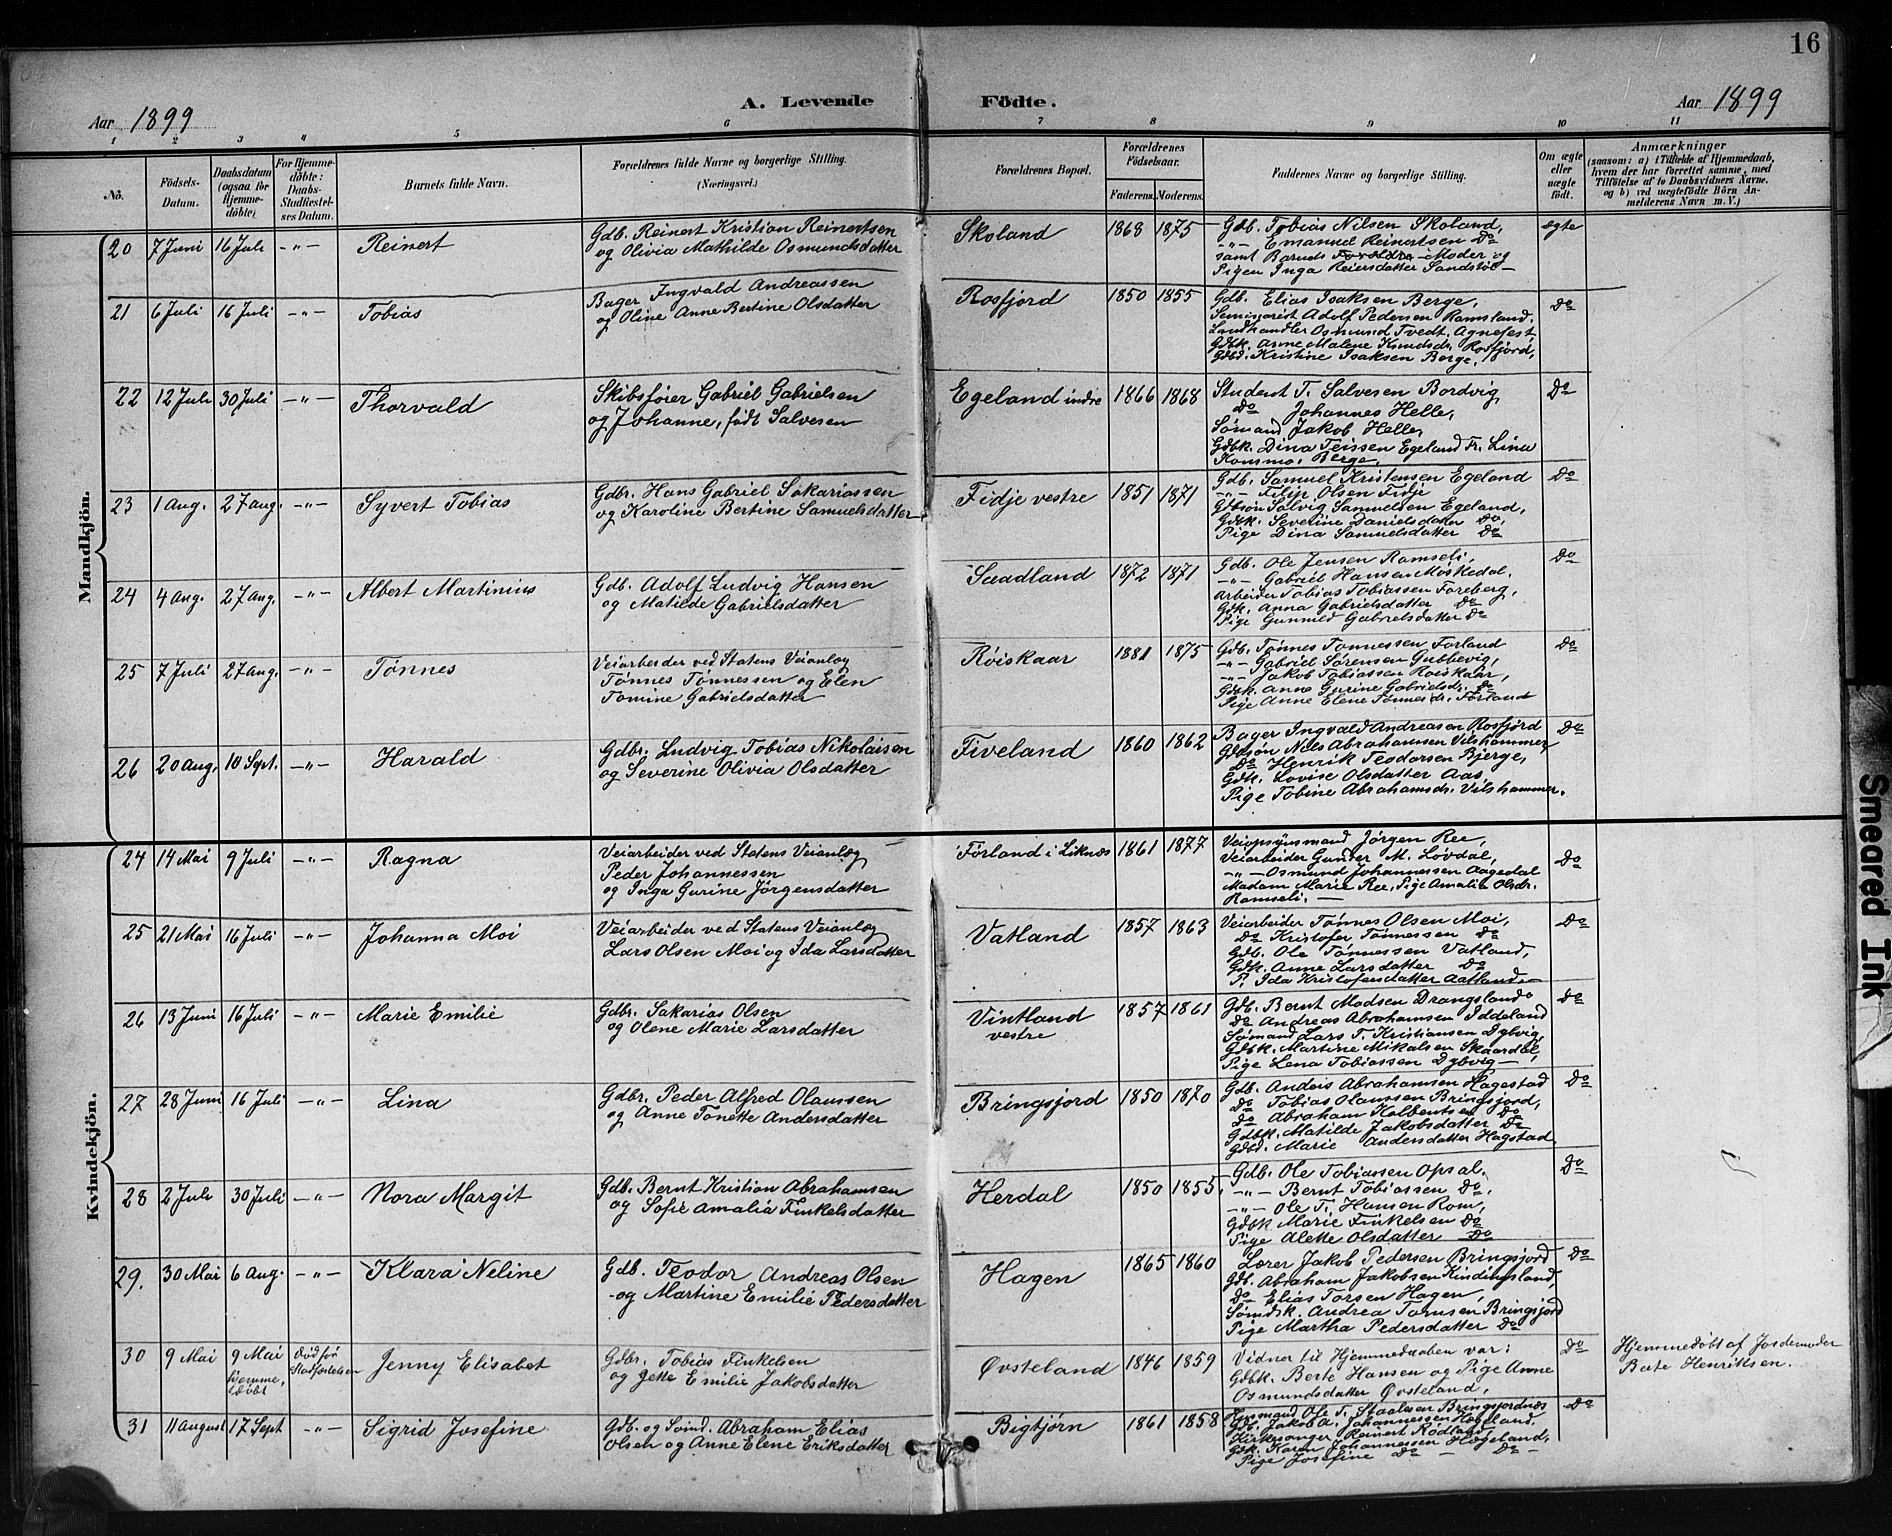 16
Aar 1899
A. Levende Födte.
Aar 1899
1 2 3 4 5 6 7 8 9 10 11
No.
Födsels-
Datum.
Daabsdatum
(ogsaa for
Hjemme-
döbte)
For Hjemme-
döbte:
Daabs-
Stadfæstel-
ses Datum.
Barnets fulde Navn.
Forældrenes fulde Navne og borgerlige Stilling.
(Næringsvei.)
Forældrenes Bopæl.
Forældrenes
Födselsaar.
Faderens. Moderens.
Faddernes Navne og borgerlige Stilling.
Om ægte
eller
uægte
födt.
Anmærkninger
(saasom: a) i Tilfælde af Hjemmedaab,
hvem der har forrettet samme, med
Tilföielse af to Daabsvidners Navne.
og b) ved uægtefödte Börn An-
melderens Navn m. V.)
Mandkjön.
20 7 Juni 16 Juli -"- Reinert
Gdb. Reinert Kristian Reinertsen
og Olivia Mathilde Osmundsdatter
Skoland 1868 1875
Gdb. Tobias Nilsen Skoland,
-"- Emanuel Reinertsen Do
samt Barnets Forældre-Moder og
Pigen Inga Reiersdatter Sandstöl-
ægte
21 6 Juli 16 Juli -"- Tobias
Bager Ingvald Andreassen
og Oline Anne Bertine Olsdatter
Rosfjord 1850 1855
Gdb. Elias Isaksen Berge,
Seminarist Adolf Pedersen Ramsland
Landhandler Osmund Tvedt. Agnefest,
Gdbk. Anne Malene Knudsdr. Rosfjord,
Gdbd. Kristine Isaksen Berge.
Do
22 12 Juli 30 Juli -"- Thorvald
Skibsfører Gabriel Gabrielsen
og Johanne, født Salvesen
Egeland indre 1866 1868
Student T. Salvesen Bordvig,
Do Johannes Helle,
Sømand Jakob Helle,
Gdbk. Dina Teissen Egeland Fr. Lina
Berge.
Do
23 1 Aug. 27 Aug. -"- Syvert Tobias
Gdbr. Hans Gabriel Sakariassen
og Karoline Bertine Samuelsdatter
Fidje vestre 1851 1871
Gdb. Samuel Kristensen Egeland
-"- Filip Olsen Fidje
Gdbsøn Salvig Samuelsen Egeland,
Gdbk. Severine Danielsdatter Do,
Pige Dina Samuelsdatter Do
Do
24 4 Aug. 27 Aug. -"- Albert Martinius
Gdb. Adolf Ludvig Hansen
og Matilde Gabrielsdatter
Saadland 1872 1871
Gdb. Ole Jensen Ramseli,
-"- Gabriel Hansen Møskedal,
Arbeider Tobias Tobiassen Foreberg,
Gdk. Anna Gabrielsdatter Do
Pige Gunnild Gabrielsdatter Do
Do
25 7 Juli 27 Aug. -"- Tønnes
Veiarbeider ved Statens Veianlæg
Tønnes Tønnessen og Elen
Tomine Gabrielsdatter
Røiskaar 1881 1875
Gdb. Tønnes Tønnessen Førland
-"- Gabriel Sørensen Gubbevig,
-"- Jakob Tobiassen Røiskaar,
Gdbk. Anne Gurine Gabrielsdr. Do
Pige Anne Elene Tønnesdr. Førland
Do
26 20 Aug. 10 Sept. -"- Harald
Gdbr. Ludvig Tobias Nikolaisen
og Severine Olivia Olsdatter
Fiveland 1860 1862
Bager Ingvald Andreasen Rosfjord
Gdbsøn Nils Abrahamsen Vilshammer,
Do Henrik Teodorsen Bjerge,
Gdk. Lovise Olsdatter Aas,
Pige Tobine Abrahamsdr. Vilshammer.
Do
Kvindekjön.
24 14 Mai 9 Juli -"- Ragna
Veiarbeider ved Statens Veianlæg
Peder Johannessen
og Inga Gurine Jørgensdatter
Førland i Liknes 1861 1877
Veiopsynsmand Jørgen Ree,
Veiarbeider Gunder M. Løvdal,
-"- Osmund Johannessen Aagedal
Madam Marie Ree, Pige Amalie Olsdr.
Ramseli. -
Do
25 21 Mai 16 Juli -"- Johanna Moi
Veiarbeider ved Statens Veianlæg
Lars Olsen Moi og Ida Larsdatter
Vatland 1857 1863
Veiarbeider Tønnes Olsen Moi,
Do Kristofer Tønnessen Do
Gdb. Ole Tønnessen Vatland,
Gdk. Anne Larsdatter Do
P. Ida Kristofersdatter Aatland.-
Do
26 13 Juni 16 Juli -"- Marie Emilie
Gdbr. Sakarias Olsen
og Olene Marie Larsdatter
Vintland
vestre
1857 1861
Gdb. Bernt Madsen Drangsland
Do Andreas Abrahamsen Iddeland
Sømand Lars T. Kristiansen Dybvig,
Gdbk. Martine Mikalsen Skaardal,
Pige Lena Tobiassen Dybvig-
Do
27 28 Juni 16 Juli -"- Lina
Gdbr. Peder Alfred Olaussen
og Anne Tonette Andersdatter
Bringsjord 1850 1870
Gdb. Anders Abrahamsen Hagestad
Do Tobias Olaussen Bringsjord,
Do Abraham Kolbentsen Do
Gdbk. Matilde Jakobsdatter Do
Gdbd. Marie Andersdatter Hagstad
Do
28 2 Juli 30 Juli -"- Nora Margit
Gdb. Bernt Kristian Abrahamsen
og Sofie Amalie Finkelsdatter
Herdal 1850 1855
Gdb. Ole Tobiassen Opsal.
-"- Bernt Tobiassen Do.
-"- Ole T. Hansen Rom,
Gdbk Marie Finkelsen Do
Pige Alette Olsdatter Do
Do
29. 30 Mai 6 Aug. -"- Klara Neline
Gdb. Teodor Andreas Olsen
og Martine Emilie Pedersdatter
Hagen 1865 1860
Lærer Jakob Pedersen Bringsjord
Gdb. Abraham Jakobsen Kindingsland,
Do Elias Torsen Hagen,
Sømdsk. Andrea Tomsen Bringsjord
Pige Martha Pedersdatter Do
Do
30 9 Mai 9 Mai
hjemme-
døbt
død før
Stadfæstelsen
Jenny Elisabet
Gdbr. Tobias Finkelsen
og Jette Emilie Jakobsdatter
Øvsteland 1846 1859
Vidner til Hjemmedaaben var:
Gdbk. Berte Hansen og Pige Anne
Osmundsdatter Øvsteland.
Do
Hjemmedøbt af Jordemoder
Berte Henriksen.
31 11 August 17 Sept -"- Sigrid Josefine
Gdb. og Sømd. Abraham Elias
Olsen og Anne Elene Eriksdatter
Bigtjørn 1861 1858
Husmand Ole T. Staalesen Bringsjordnes
Gdb. Jakob A. Johannessen Høgeland.
Kirkesanger Reinert Rødland,
Gdk. Karen Johannessen Høgeland,
Pige Josefine Do - Do-
Do
Smeared Ink